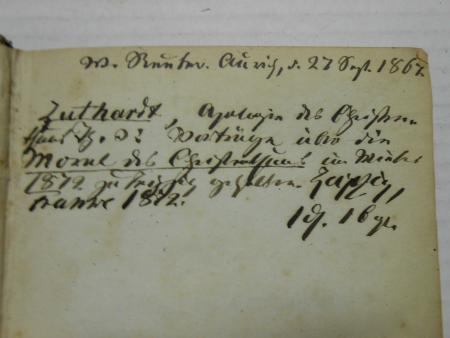 W. Reuter. Aurich, d. 27 Sept. 1867.
Luthardt, Apologie des Christen-
thums Vorträge über die
Moral des Christenthums im Winter
1872 zu Leipzig gehalten. Leipzig,
1872.
16 gr.